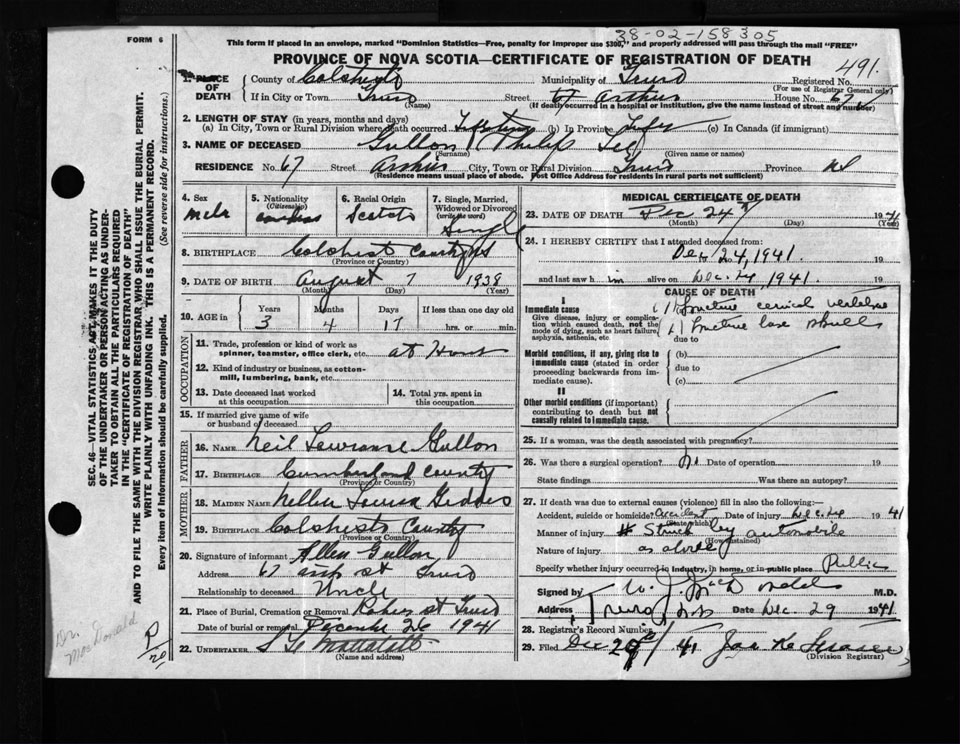 38-02-158305
FORM 6
This form if placed in an envelope, marked "Dominion Statistics—Free, penalty for improper use $300," and properly addressed will pass through the mail "FREE"
PROVINCE OF NOVA SCOTIA—CERTIFICATE OF REGISTRATION OF DEATH
491.
1. PLACE OF DEATH
County of Colchester Municipality of Truro Registered No.
(For use of Registrar General only)
If in City or Town Truro Street 67 Arthur House No. 67
(Name) (If death occurred in a hospital or institution, give the name instead of street and number)
2. LENGTH OF STAY (in years, months and days)
(a) In City, Town or Rural Division where death occurred Life time (b) In Province Life (c) In Canada (if immigrant)
3. NAME OF DECEASED Philip
(Surname) (Given name or names)
RESIDENCE No. 67 Street Arthur City, Town or Rural Division Truro Province NS
(Residence means usual place of abode. Post Office Address for residents in rural parts not sufficient)
4. Sex
Male
5. Nationality
(Citizenship)
6. Racial Origin
7. Single, Married, Widowed or Divorced
(write the word)
Single
8. BIRTHPLACE Colchest County NS
(Province or Country)
9. DATE OF BIRTH August 7 1938
(Month) (Day) (Year)
10. AGE in
Years Months Days If less than one day old
3 4 17 hrs. or min.
OCCUPATION
11. Trade, profession or kind of work as spinner, teamster, office clerk, etc. at Home
12. Kind of industry or business, as cotton-mill, lumbering, bank, etc.
13. Date deceased last worked at this occupation
14. Total yrs. spent in this occupation
15. If married give name of wife or husband of deceased
FATHER
16. NAME Neil
17. BIRTHPLACE Cumberland County
(Province or Country)
MOTHER
18. MAIDEN NAME Nellie Geddes
19. BIRTHPLACE Colchester County
(Province or Country)
20. Signature of informant Allen
Address 67 st Truro
Relationship to deceased Uncle
21. Place of Burial, Cremation or Removal st Truro
Date of burial or removal December 26 1941
22. UNDERTAKER
(Name and address)
MEDICAL CERTIFICATE OF DEATH
23. DATE OF DEATH Dec 24 1941
(Month) (Day) (Year)
24. I HEREBY CERTIFY that I attended deceased from:
Dec 24, 1941. 19
and last saw him alive on Dec. 24, 1941. 19
CAUSE OF DEATH
I
Immediate cause
Give disease, injury or complication which caused death, not the mode of dying, such as heart failure, asphyxia, asthenia, etc
Fracture cervical vertebrae
Fracture base skull
due to
Morbid conditions, if any, giving rise to immediate cause (stated in order proceeding backwards from immediate cause).
(b)
due to
(c)
II
Other morbid conditions (if important) contributing to death but not causally related to immediate cause.
25. If a woman, was the death associated with pregnancy?
26. Was there a surgical operation? No Date of operation 19
State findings Was there an autopsy?
27. If death was due to external causes (violence) fill in also the following:—
Accident, suicide or homicide? Accident Date of injury Dec. 24 1941
(State which)
Manner of injury Struck by automobile
(How sustained)
Nature of injury as above
Specify whether injury occurred in industry, in home, or in public place Public
Signed by W. J. MacDonald M.D.
Address Truro NS Date Dec. 29 1941
28. Registrar's Record Number
29. Filed Dec 29 / 41 Jas K Fraser
(Division Registrar)
SEC. 46—VITAL STATISTICS ACT, MAKES IT THE DUTY
OF THE UNDERTAKER OR PERSON ACTING AS UNDER-
TAKER TO OBTAIN ALL THE PARTICULARS REQUIRED
IN THE "CERTIFICATE OF REGISTRATION OF DEATH"
AND TO FILE THE SAME WITH THE DIVISION REGISTRAR WHO SHALL ISSUE THE BURIAL PERMIT.
WRITE PLAINLY WITH UNFADING INK. THIS IS A PERMANENT RECORD.
Every item of Information should be carefully supplied. (See reverse side for instructions.)
Dr.
MacDonald